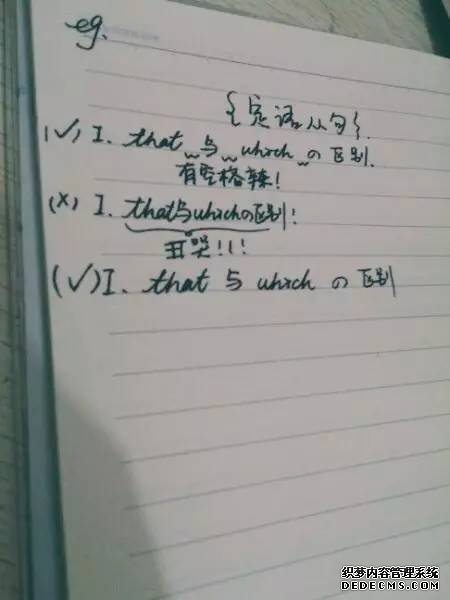 eg.
{定语从句}.
(√) I. that 与 which の区别.
有空格辣!
(×) I. that与whichの区别!
丑哭!!!
(√) I. that 与 which の 区别
织梦内容管理系统
DEDECMS.COM